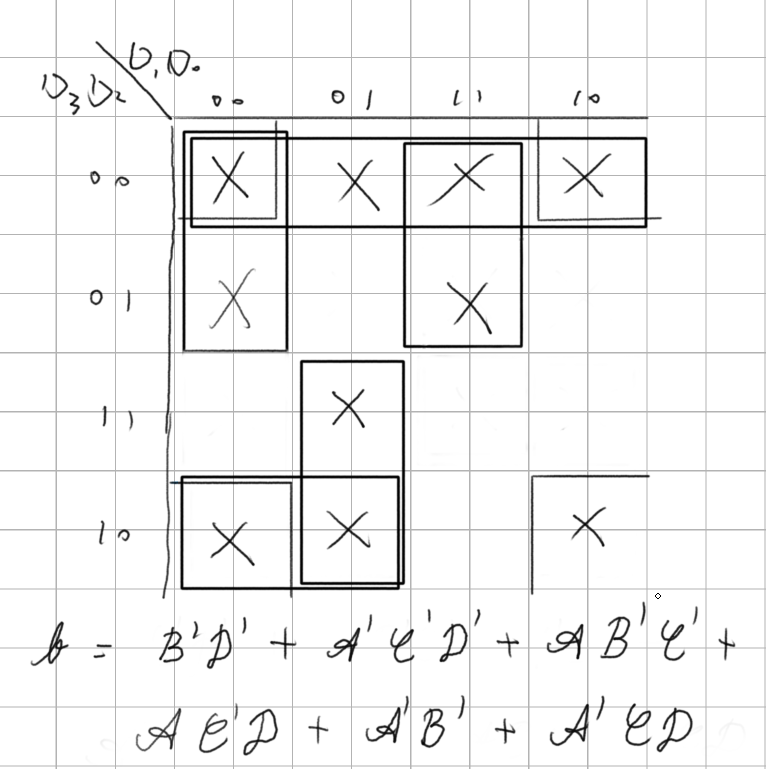 D₁D₀
D₃D₂
00 01 11 10
00 X X X X
01 X X
11 X
10 X X X
b = B'D' + A'C'D' + AB'C' +
AC'D + A'B' + A'CD